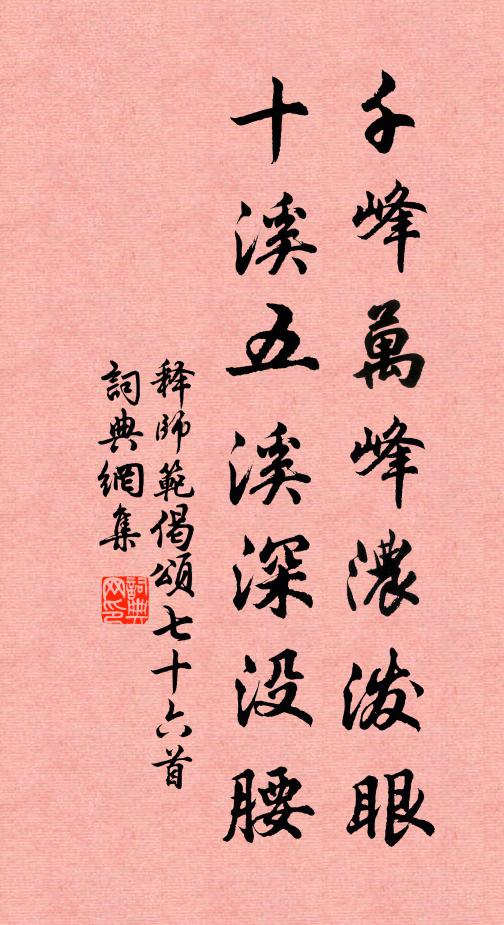 千峰萬峰濃泼眼
十溪五溪深没腰
释師範偈頌七十六首
詞典網集